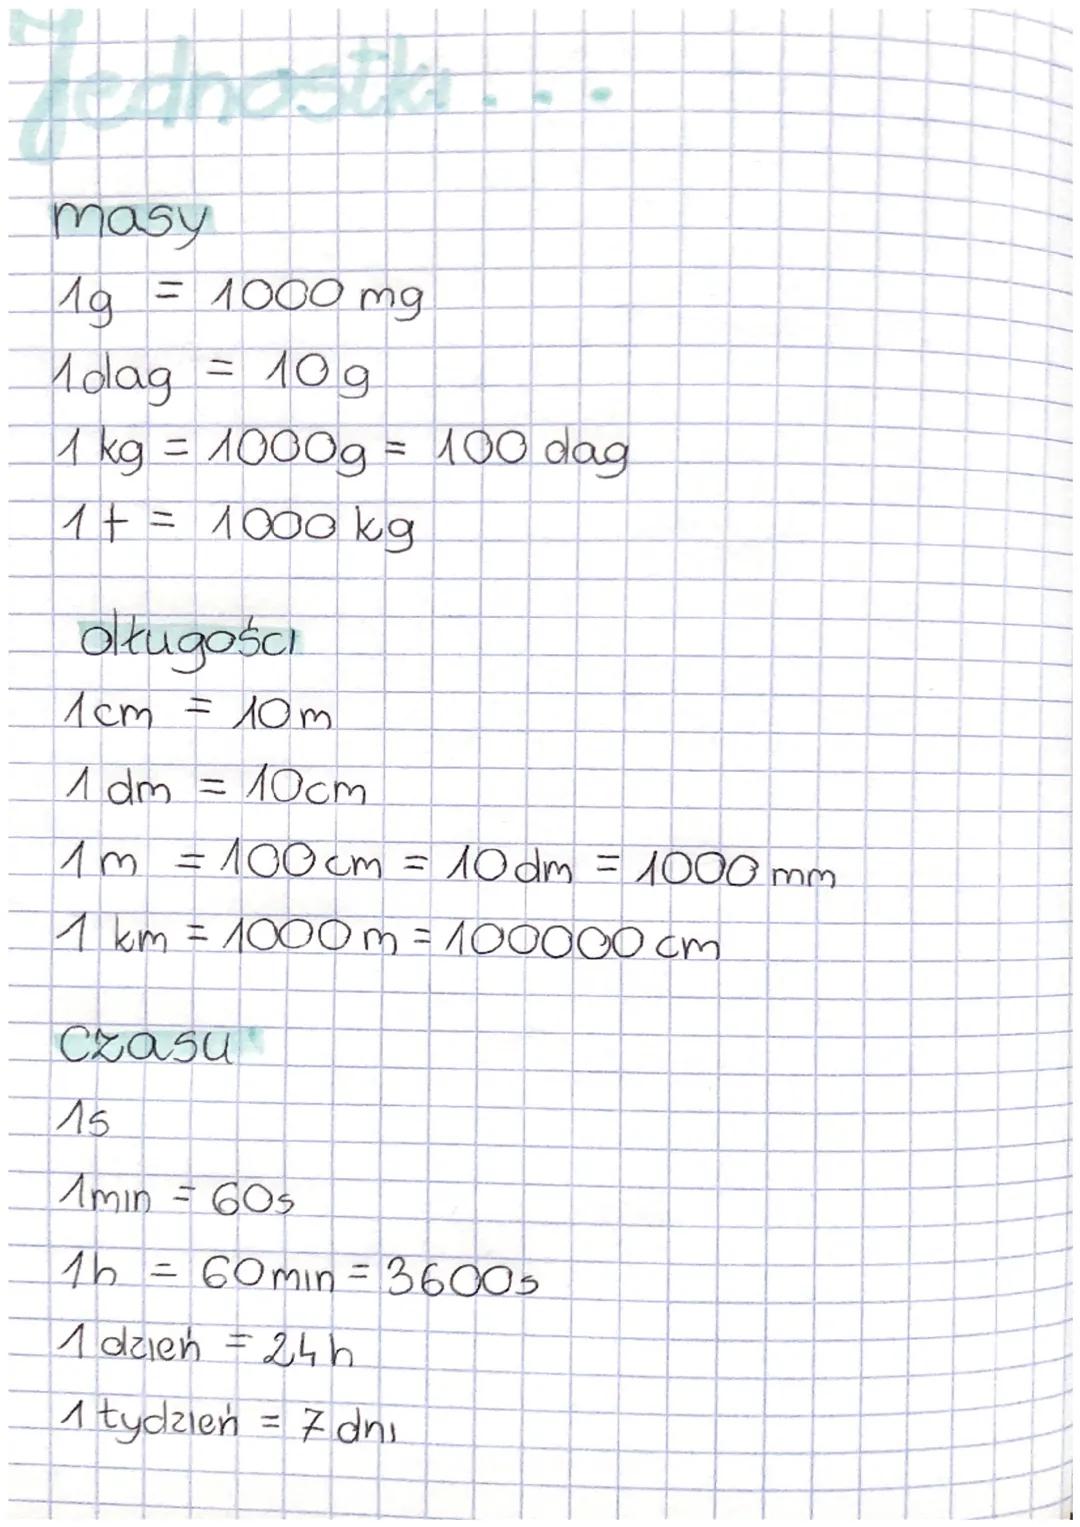 Jednostki...
masy
1g = 1000 mg
1dag = 10g
1 kg = 1000g = 100 dag
1t = 1000 kg
długości
1cm = 10m
1 dm = 10cm
1m = 100cm = 10dm = 1000 mm
1 km = 1000m = 100000 cm
czasu
1s
1min = 60s
1h = 60min = 3600s
1 dzień = 24h
1 tydzień = 7 dni